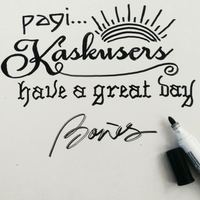 pagi...
Kaskusers
have a great day